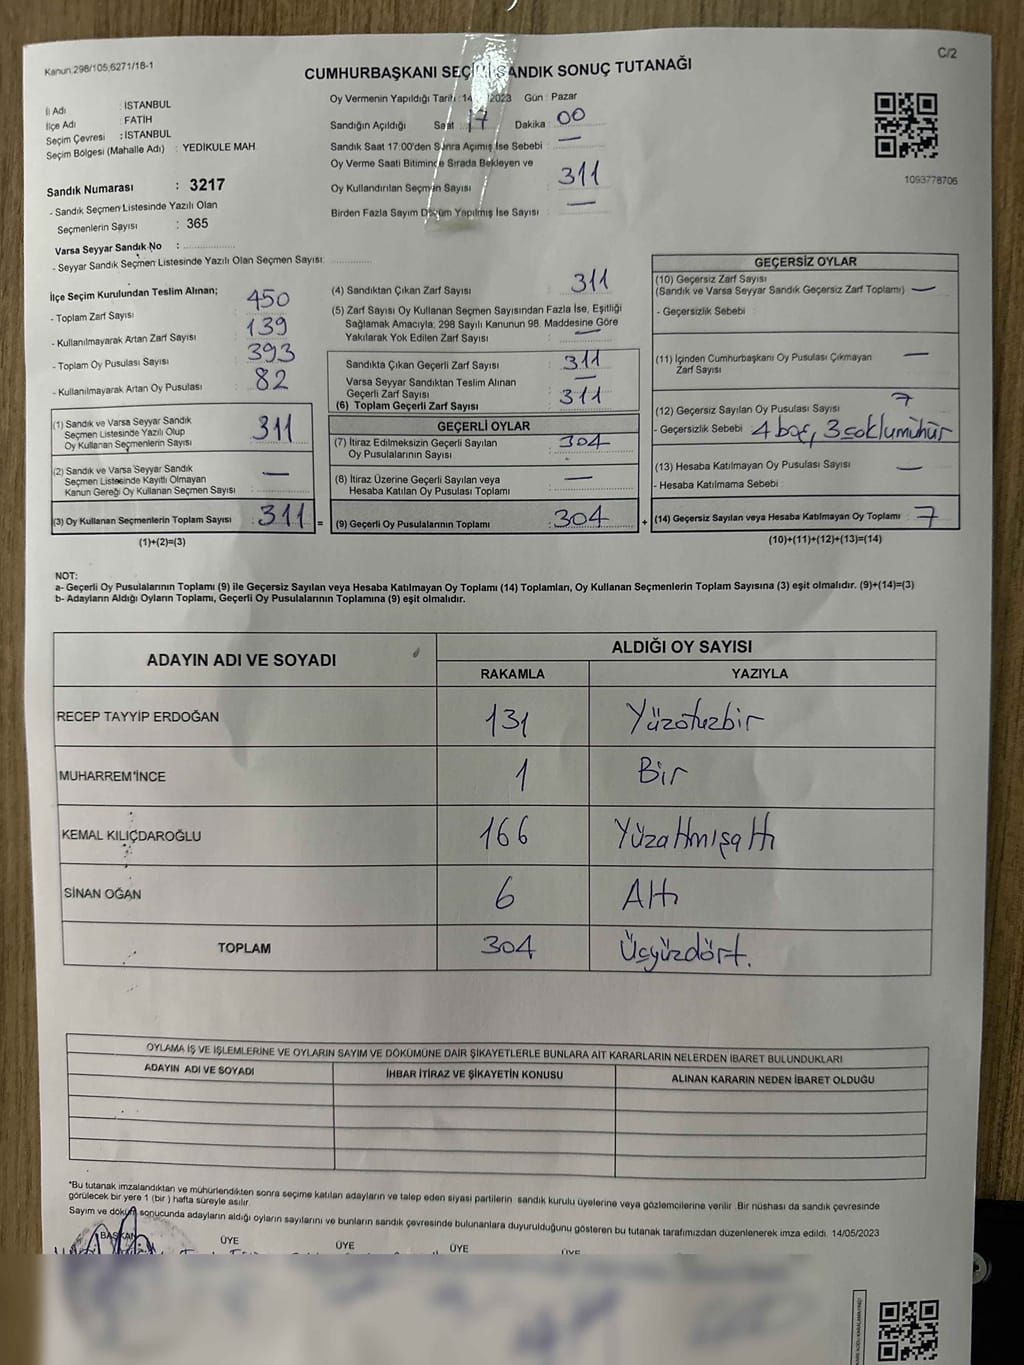 Kanun,298/105,6271/18-1
C/2
CUMHURBAŞKANI SEÇİMİ SANDIK SONUÇ TUTANAĞI
İl Adı : İSTANBUL
İlçe Adı : FATİH
Seçim Çevresi : İSTANBUL
Seçim Bölgesi (Mahalle Adı) : YEDİKULE MAH.
Sandık Numarası : 3217
- Sandık Seçmen Listesinde Yazılı Olan
Seçmenlerin Sayısı : 365
Varsa Seyyar Sandık No :
- Seyyar Sandık Seçmen Listesinde Yazılı Olan Seçmen Sayısı:
Oy Vermenin Yapıldığı Tarih : 14 2023 Gün : Pazar
Sandığın Açıldığı Saat : 17 Dakika : 00
Sandık Saat 17:00'den Sonra Açımış İse Sebebi : —
Oy Verme Saati Bitiminde Sırada Bekleyen ve
Oy Kullandırılan Seçmen Sayısı : 311
Birden Fazla Sayım Döküm Yapılmış İse Sayısı : —
1093778706
İlçe Seçim Kurulundan Teslim Alınan;
- Toplam Zarf Sayısı : 450
- Kullanılmayarak Artan Zarf Sayısı : 139
- Toplam Oy Pusulası Sayısı : 393
- Kullanılmayarak Artan Oy Pusulası : 82
(1) Sandık ve Varsa Seyyar Sandık
Seçmen Listesinde Yazılı Olup
Oy Kullanan Seçmenlerin Sayısı : 311
(2) Sandık ve Varsa Seyyar Sandık
Seçmen Listesinde Kayıtlı Olmayan
Kanun Gereği Oy Kullanan Seçmen Sayısı : —
(3) Oy Kullanan Seçmenlerin Toplam Sayısı : 311 =
(1)+(2)=(3)
(4) Sandıktan Çıkan Zarf Sayısı : 311
(5) Zarf Sayısı Oy Kullanan Seçmen Sayısından Fazla İse, Eşitliği
Sağlamak Amacıyla; 298 Sayılı Kanunun 98. Maddesine Göre
Yakılarak Yok Edilen Zarf Sayısı : —
Sandıkta Çıkan Geçerli Zarf Sayısı : 311
Varsa Seyyar Sandıktan Teslim Alınan
Geçerli Zarf Sayısı : —
(6) Toplam Geçerli Zarf Sayısı : 311
GEÇERLİ OYLAR
(7) İtiraz Edilmeksizin Geçerli Sayılan
Oy Pusulalarının Sayısı : 304
(8) İtiraz Üzerine Geçerli Sayılan veya
Hesaba Katılan Oy Pusulası Toplamı : —
(9) Geçerli Oy Pusulalarının Toplamı : 304 +
GEÇERSİZ OYLAR
(10) Geçersiz Zarf Sayısı
(Sandık ve Varsa Seyyar Sandık Geçersiz Zarf Toplamı) : —
- Geçersizlik Sebebi :
(11) İçinden Cumhurbaşkanı Oy Pusulası Çıkmayan
Zarf Sayısı : —
(12) Geçersiz Sayılan Oy Pusulası Sayısı : 7
- Geçersizlik Sebebi : 4 boş, 3 çoklumühür
(13) Hesaba Katılmayan Oy Pusulası Sayısı : —
- Hesaba Katılmama Sebebi :
(14) Geçersiz Sayılan veya Hesaba Katılmayan Oy Toplamı : 7
(10)+(11)+(12)+(13)=(14)
NOT:
a- Geçerli Oy Pusulalarının Toplamı (9) ile Geçersiz Sayılan veya Hesaba Katılmayan Oy Toplamı (14) Toplamları, Oy Kullanan Seçmenlerin Toplam Sayısına (3) eşit olmalıdır. (9)+(14)=(3)
b- Adayların Aldığı Oyların Toplamı, Geçerli Oy Pusulalarının Toplamına (9) eşit olmalıdır.
ADAYIN ADI VE SOYADI
ALDIĞI OY SAYISI
RAKAMLA YAZIYLA
RECEP TAYYİP ERDOĞAN 131 Yüzotuzbir
MUHARREM İNCE 1 Bir
KEMAL KILIÇDAROĞLU 166 Yüzaltmışaltı
SİNAN OĞAN 6 Altı
TOPLAM 304 Üçyüzdört.
OYLAMA İŞ VE İŞLEMLERİNE VE OYLARIN SAYIM VE DÖKÜMÜNE DAİR ŞİKAYETLERLE BUNLARA AİT KARARLARIN NELERDEN İBARET BULUNDUKLARI
ADAYIN ADI VE SOYADI İHBAR İTİRAZ VE ŞİKAYETİN KONUSU ALINAN KARARIN NEDEN İBARET OLDUĞU
*Bu tutanak imzalandıktan ve mühürlendikten sonra seçime katılan adayların ve talep eden siyasi partilerin sandık kurulu üyelerine veya gözlemcilerine verilir. Bir nüshası da sandık çevresinde
görülecek bir yere 1 (bir ) hafta süreyle asılır.
Sayım ve döküm sonucunda adayların aldığı oyların sayılarını ve bunların sandık çevresinde bulunanlara duyurulduğunu gösteren bu tutanak tarafımızdan düzenlenerek imza edildi. 14/05/2023
BAŞKAN ÜYE ÜYE ÜYE ÜYE